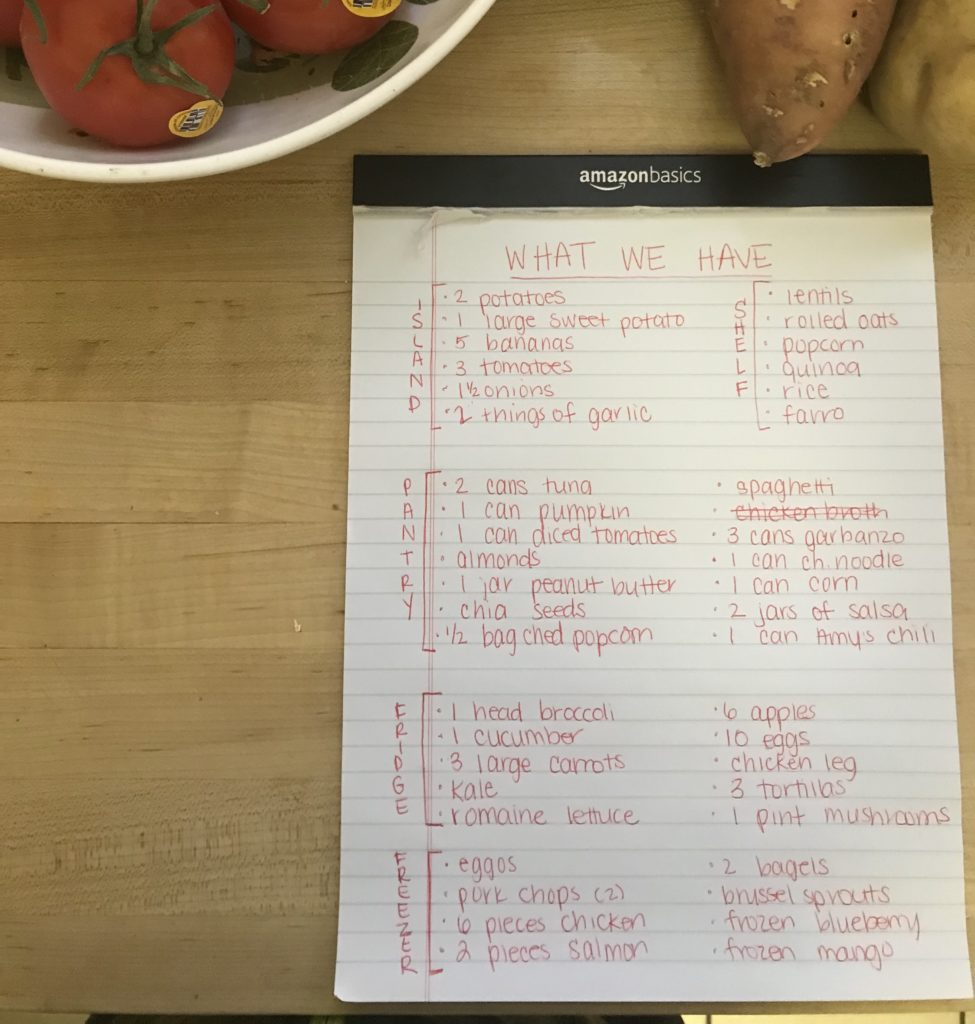 amazonbasics
WHAT WE HAVE
ISLAND
· 2 potatoes
· 1 large sweet potato
· 5 bananas
· 3 tomatoes
· 1½ onions
· 2 things of garlic
SHELF
· lentils
· rolled oats
· popcorn
· quinoa
· rice
· farro
PANTRY
· 2 cans tuna
· 1 can pumpkin
· 1 can diced tomatoes
· almonds
· 1 jar peanut butter
· chia seeds
· ½ bag ched popcorn
· spaghetti
· chicken broth
· 3 cans garbanzo
· 1 can ch. noodle
· 1 can corn
· 2 jars of salsa
· 1 can Amy's chili
FRIDGE
· 1 head broccoli
· 1 cucumber
· 3 large carrots
· kale
· romaine lettuce
· 6 apples
· 10 eggs
· chicken leg
· 3 tortillas
· 1 pint mushrooms
FREEZER
· eggos
· pork chops (2)
· 6 pieces chicken
· 2 pieces salmon
· 2 bagels
· brussel sprouts
· frozen blueberry
· frozen mango